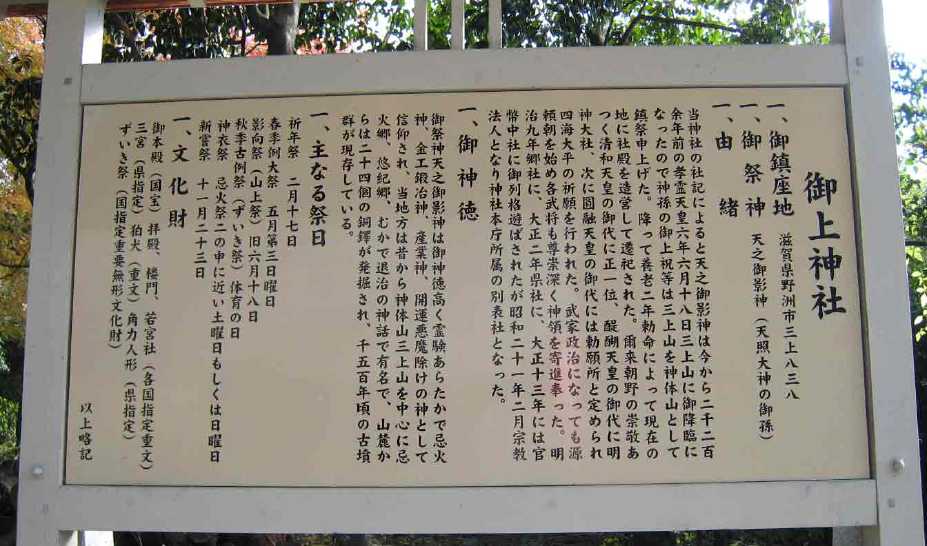 御上神社
一、御鎮座地　滋賀県野洲市三上八三八
一、御祭神　天之御影神（天照大神の御孫）
一、由緒
当神社の社記によると天之御影神は今から二千二百
余年前の孝霊天皇六年六月十八日三上山に御降臨に
なったので神孫の御上祝等は三上山を神体山として
鎮祭申上げた。降って養老二年勅命によって現在の
地に社殿を造営して遷祀された。爾来朝野の崇敬あ
つく清和天皇の御代に正一位、醍醐天皇の御代に明
神大社、次に圓融天皇の御代には勅願所と定められ
四海大平の祈願を行われた。武家政治になっても源
頼朝を始め各武将も尊崇深く神領を寄進奉った。明
治九年郷社に、大正二年県社に、大正十三年には官
幣中社に御列格遊ばされたが昭和二十一年二月宗教
法人となり神社本庁所属の別表社となった。
一、御神徳
御祭神天之御影神は御神徳高く霊験あらたかで忌火
神、金工鍛冶神、産業神、開運悪魔除けの神として
信仰され、当地方は昔から神体山三上山を中心に忌
火郷、悠紀郷、むかで退治の神話で有名で、山麓か
らは二十四個の銅鐸が発掘され、千五百年頃の古墳
群が現存している。
一、主なる祭日
祈年祭　二月十七日
春季例大祭　五月第三日曜日
影向祭（山上祭）旧六月十八日
秋季古例祭（ずいき祭）体育の日
神衣祭　忌火祭二の申に近い土曜日もしくは日曜日
新嘗祭　十一月二十三日
一、文化財
御本殿（国宝）拝殿、楼門、若宮社（各国指定重文）
三宮（県指定）狛犬（重文）角力人形（県指定）
ずいき祭（国指定重要無形文化財）
以上略記